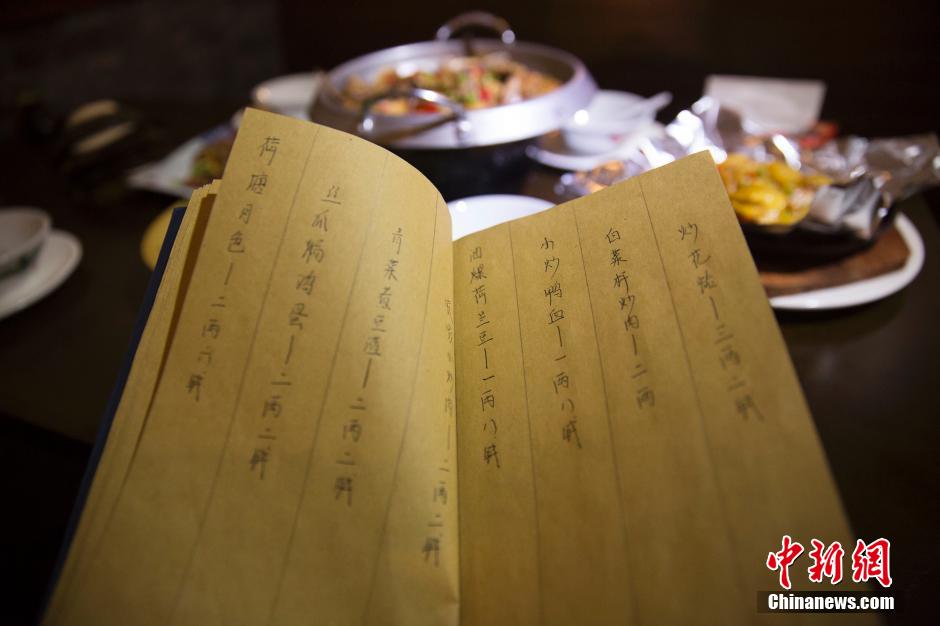 炒花蛤—三两二钱
白菜杆炒肉—二两
小炒鸭血—一两八钱
油爆荷兰豆—一两八钱
炒肉—二两二钱
青菜煮豆渣—二两二钱
丝瓜焗鸡蛋—二两二钱
荷塘月色—二两六钱
中新网
Chinanews.com